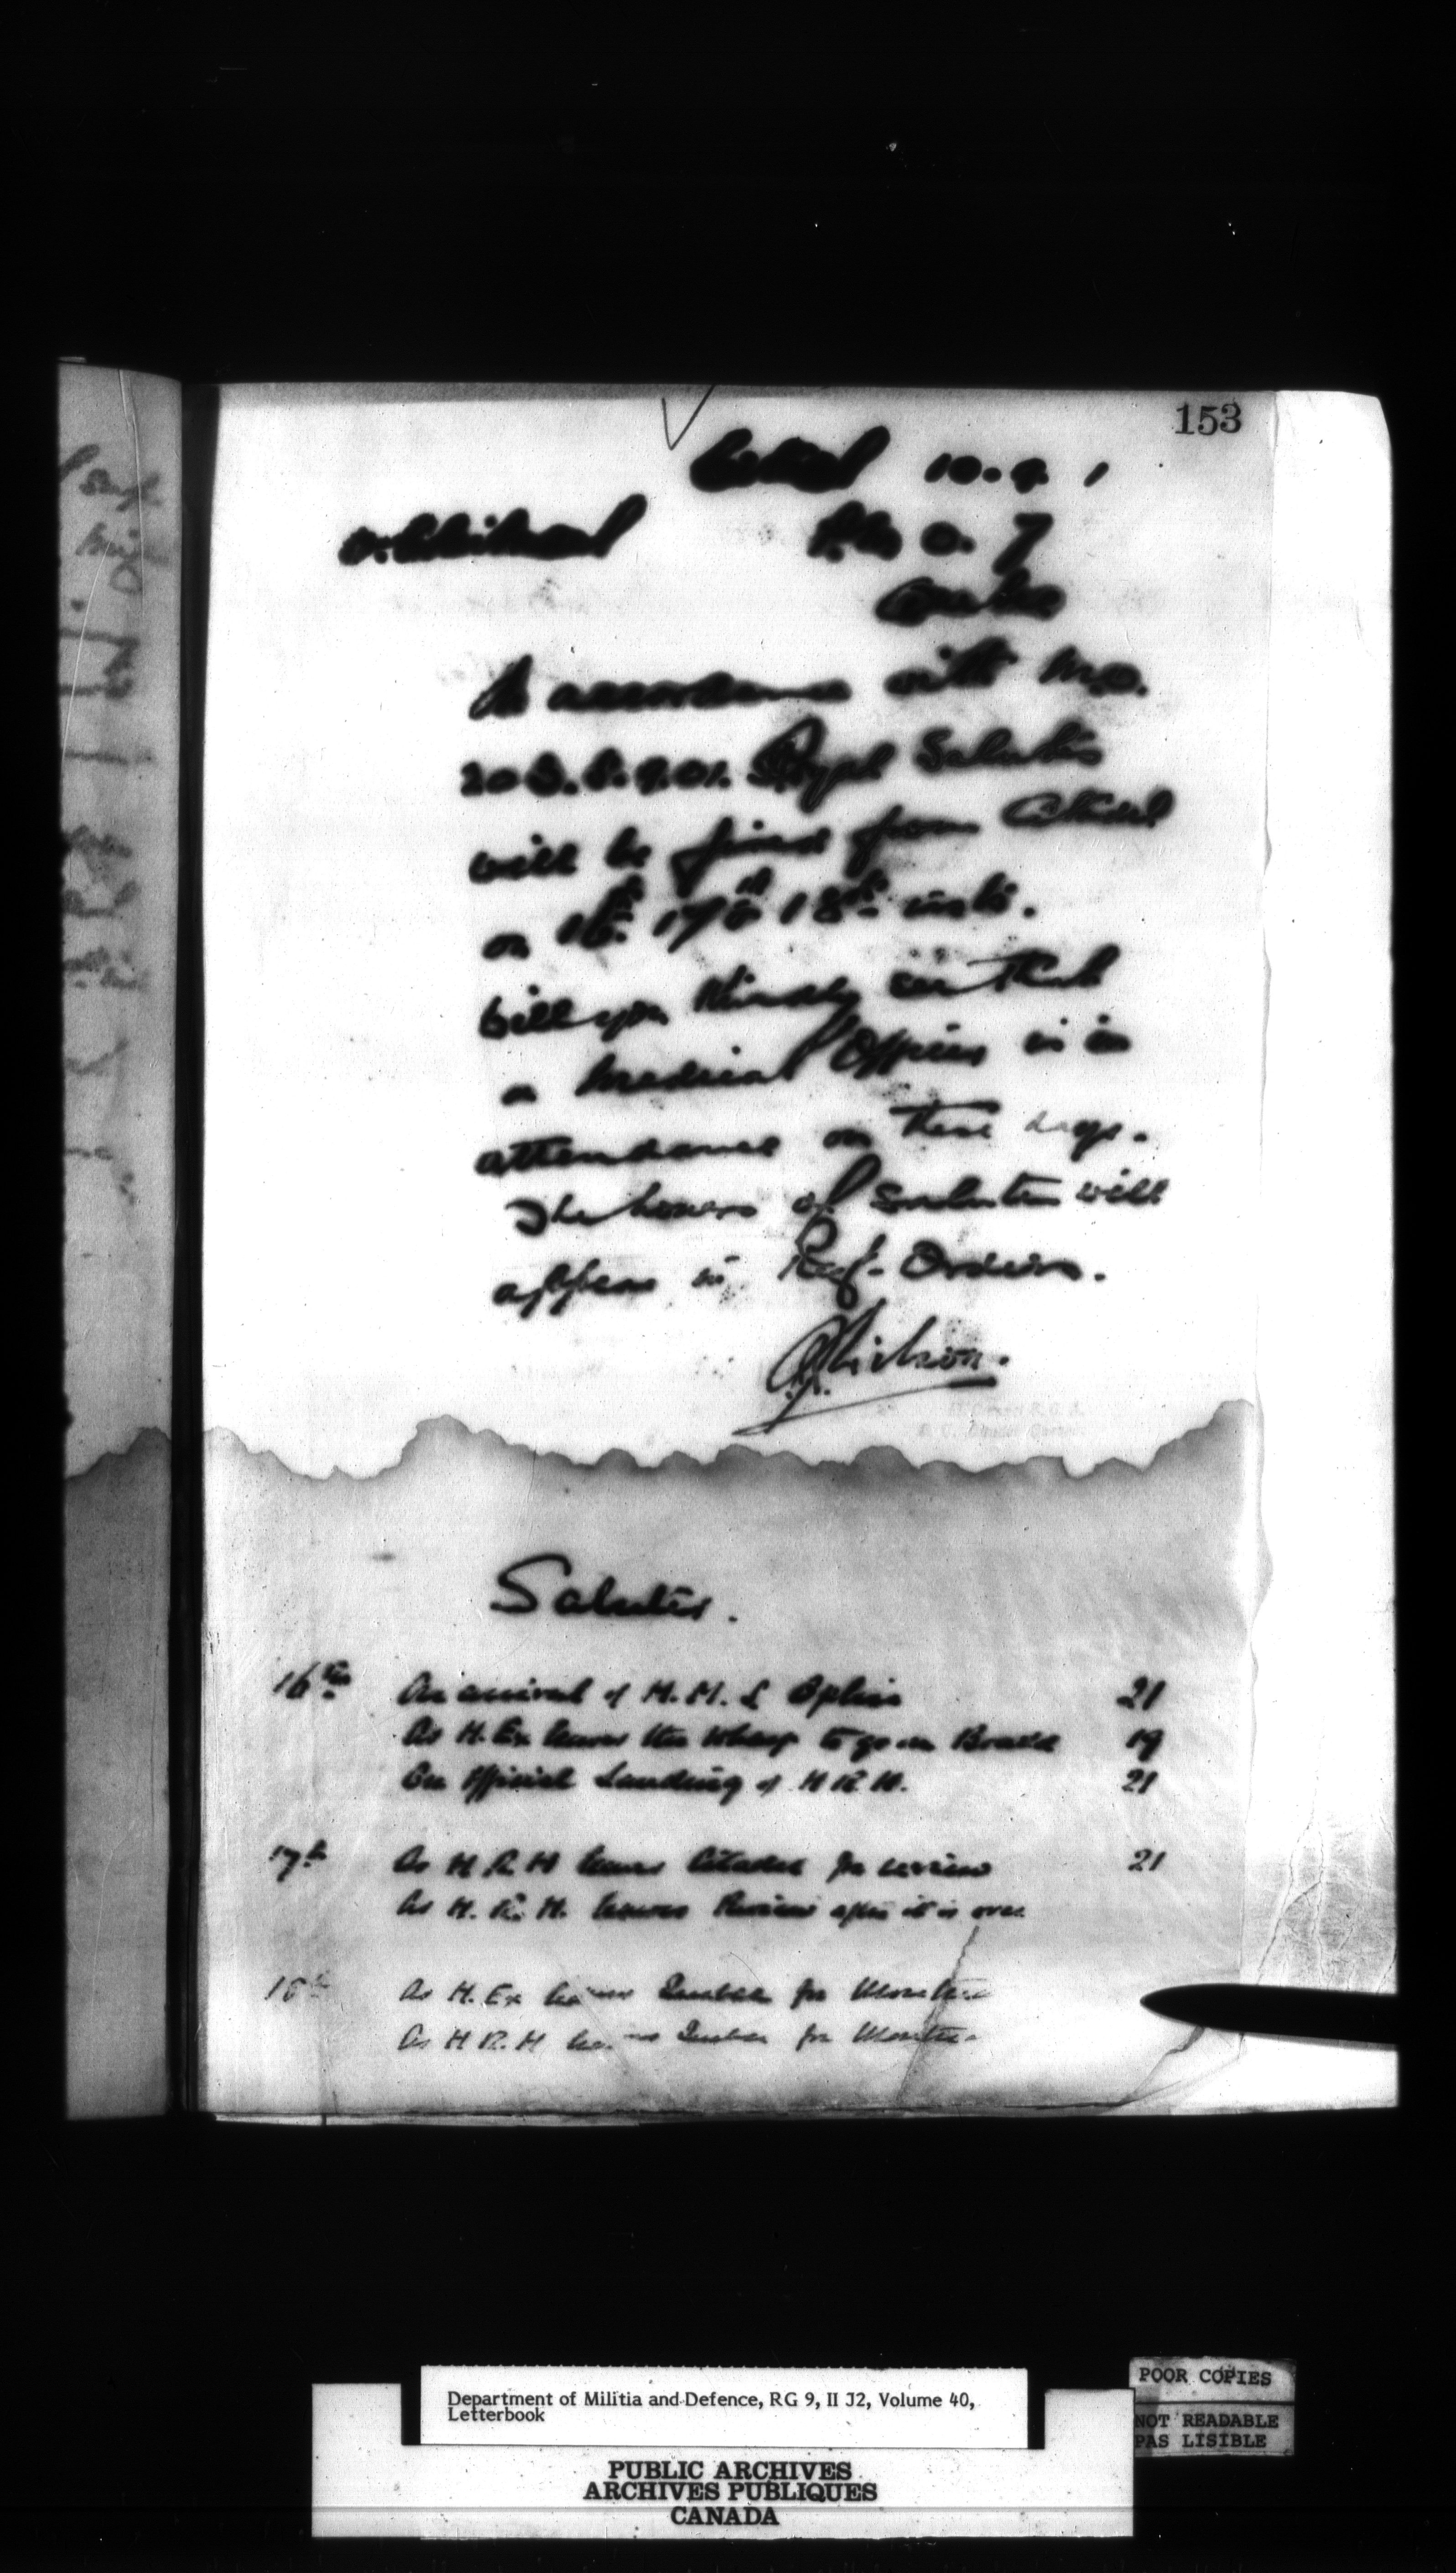 153
Citadel 10.9.1
P.M.O. 7
Quebec
In accordance with M.O.
203.8.9.01. Royal Salutes
will be fired from Citadel
on 16th 17th & 18th insts.
Will you kindly see that
a Medical Officer is in
attendance on these days.
The hours of Salutes will
appear in Regt. Orders.
Salutes.
16th On arrival of H.M.S Ophir 21
As H. Ex leaves the Wharf to go on Board 19
On Official Landing of H R H. 21
17th As H R H leaves Citadel for review 21
As H. R. H. leaves Review after it is over
18th As H. Ex leaves Quebec for Montreal
As H R. H leaves Quebec for Montreal
Department of Militia and Defence, RG 9, II J2, Volume 40,
Letterbook
PUBLIC ARCHIVES
ARCHIVES PUBLIQUES
CANADA
POOR COPIES
NOT READABLE
PAS LISIBLE